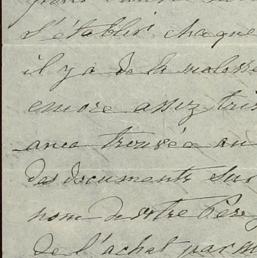 s'établir chaque
il y a de la
encore assez
ance trouvée au
des documents sur
nom de votre Père
de l'achat par M